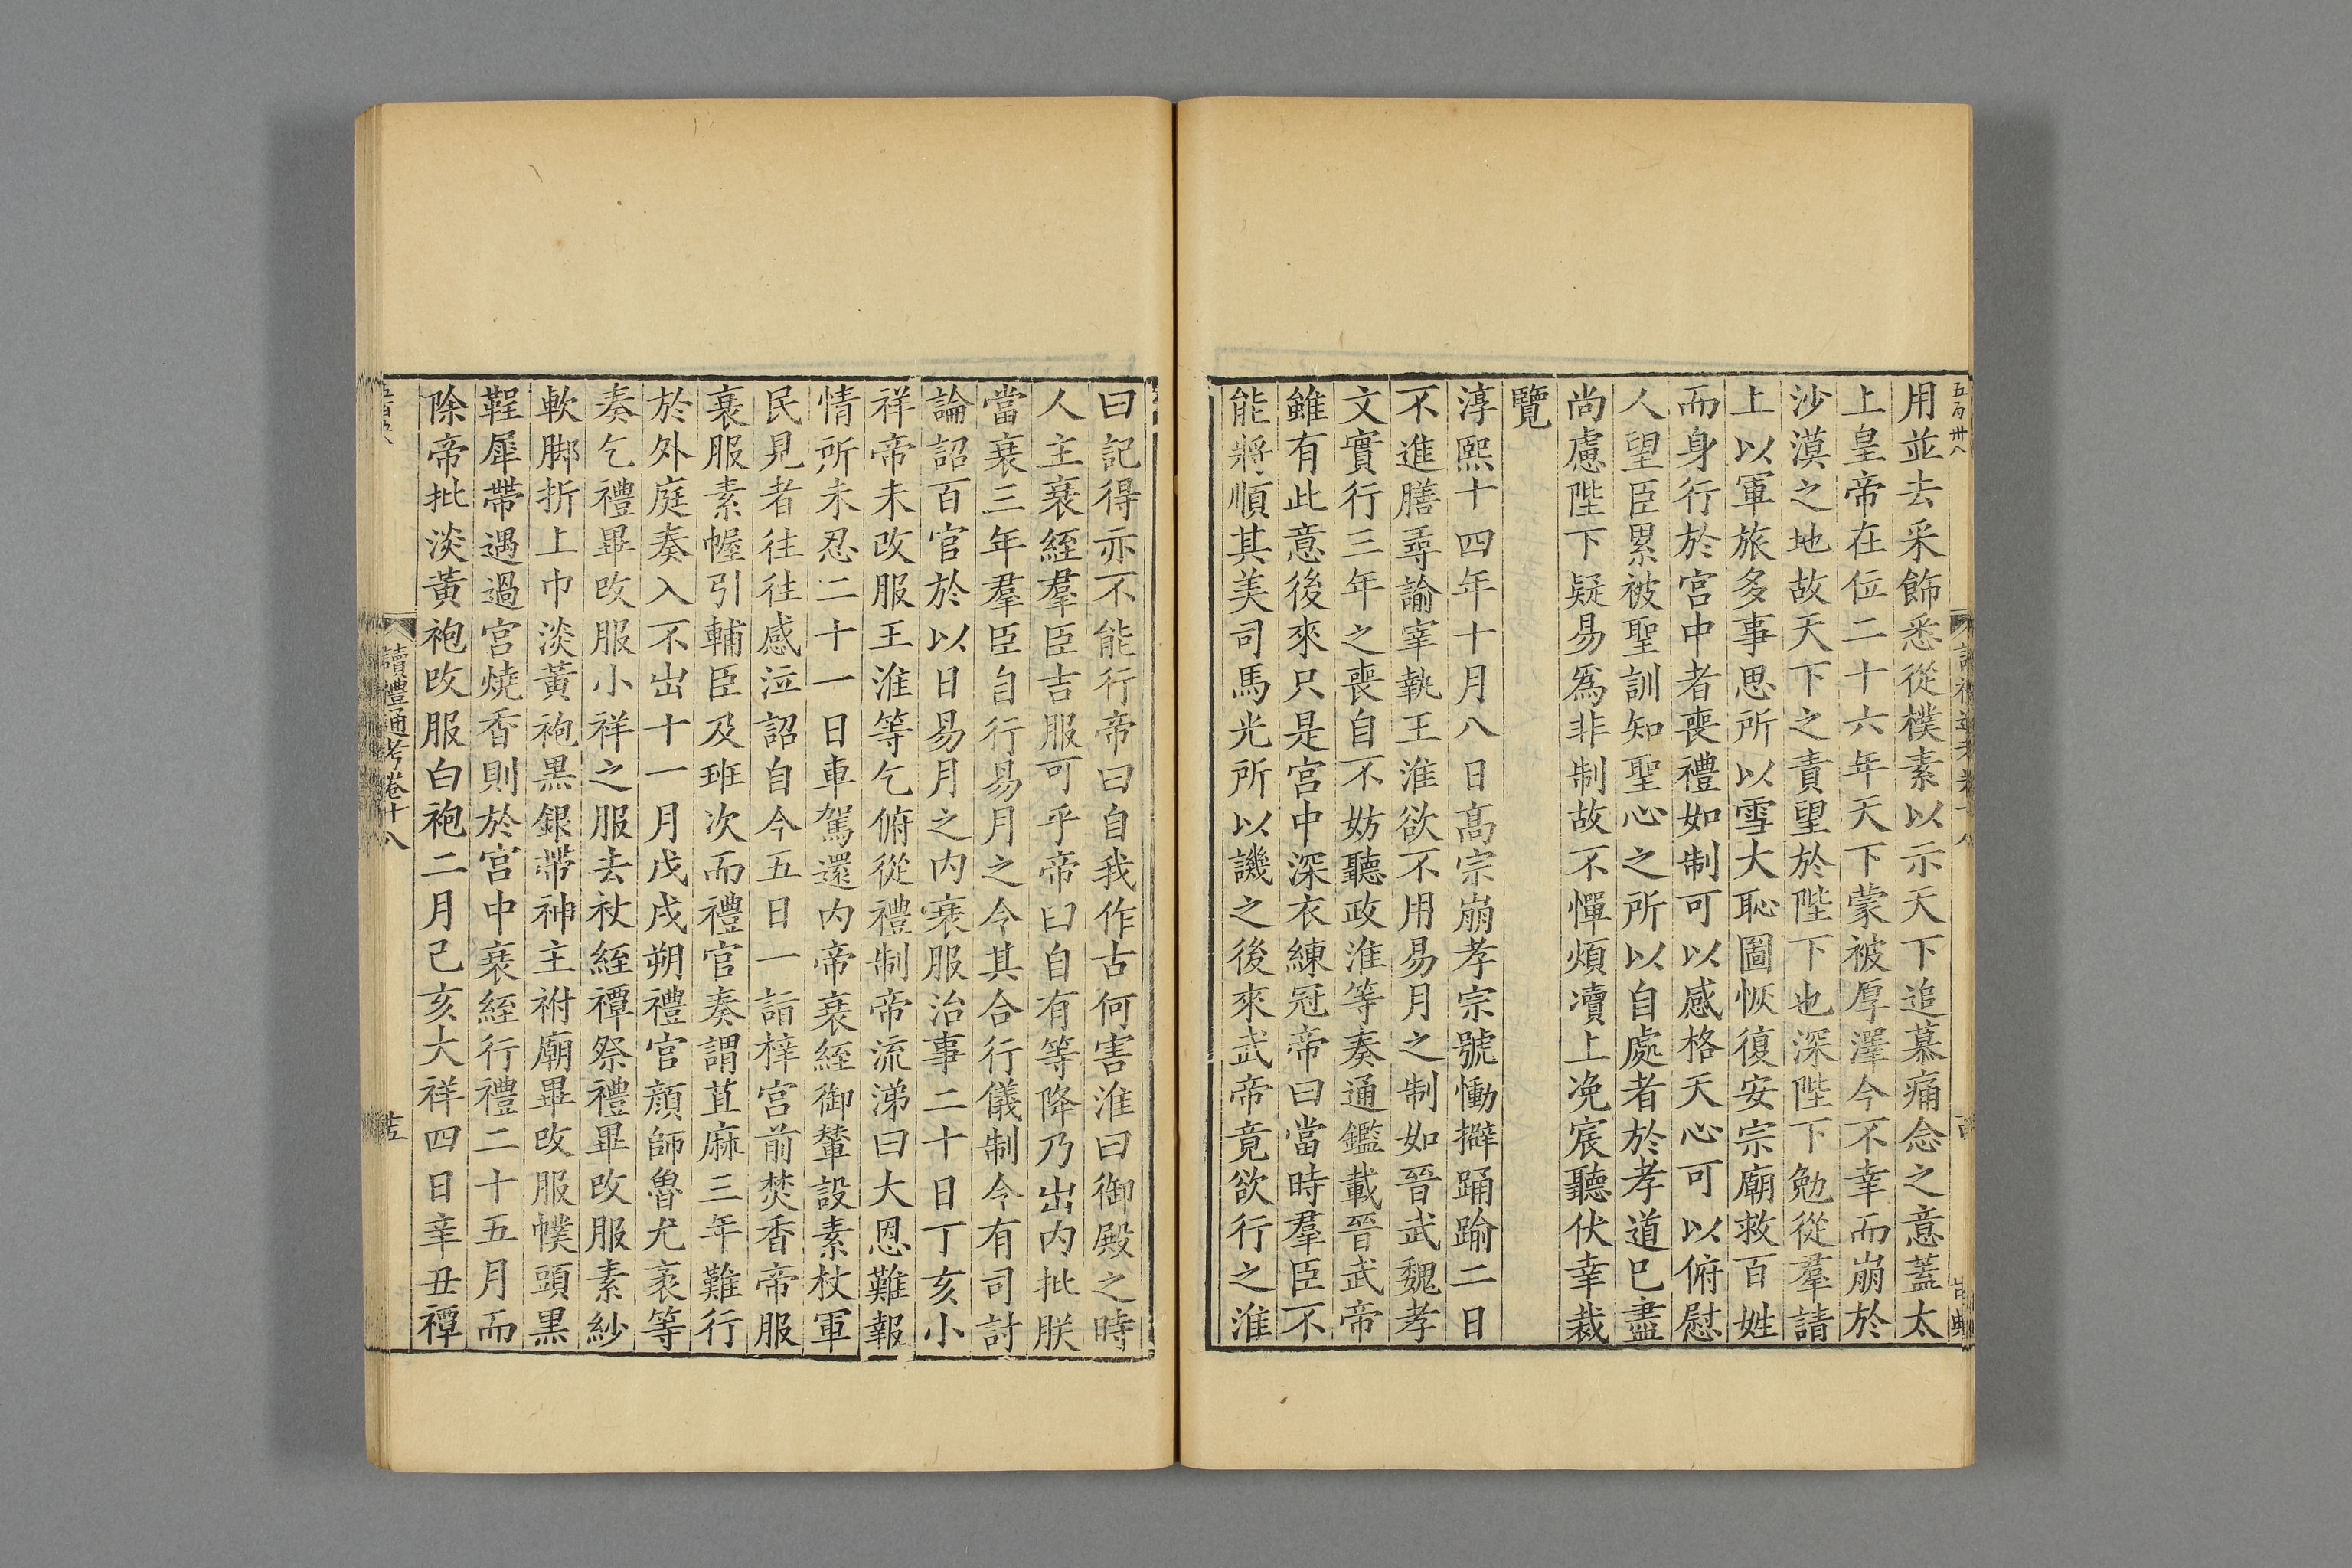 五百卅八
用並去采飾悉從樸素以示天下追慕痛念之意蓋太
上皇帝在位二十六年天下蒙被厚澤今不幸而崩於
沙漠之地故天下之責望於陛下也深陛下勉從羣請
上以軍旅多事思所以雪大恥圖恢復安宗廟救百姓
而身行於宮中者喪禮如制可以感格天心可以俯慰
人望臣累被聖訓知聖心之所以自處者於孝道已盡
尚慮陛下疑易爲非制故不憚煩瀆上凂宸聽伏幸裁
覽
淳熙十四年十月八日高宗崩孝宗號慟擗踊踰二日
不進膳尋諭宰執王淮欲不用易月之制如晉武魏孝
文實行三年之喪自不妨聽政淮等奏通鑑載晉武帝
雖有此意後來只是宮中深衣練冠帝曰當時羣臣不
能將順其美司馬光所以譏之後來武帝竟欲行之淮
曰記得亦不能行帝曰自我作古何害淮曰御殿之時
人主衰絰羣臣吉服可乎帝曰自有等降乃出内批朕
當衰三年羣臣自行易月之令其合行儀制令有司討
論詔百官於以日易月之内衰服治事二十日丁亥小
祥帝未改服王淮等乞俯從禮制帝流涕曰大恩難報
情所未忍二十一日車駕還内帝衰絰御輦設素杖軍
民見者往往感泣詔自今五日一詣梓宮前焚香帝服
衰服素幄引輔臣及班次而禮官奏謂苴麻三年難行
於外庭奏入不出十一月戊戌朔禮官顔師魯尤袤等
奏乞禮畢改服小祥之服去杖絰禫祭禮畢改服素紗
軟脚折上巾淡黃袍黑銀帶神主祔廟畢改服幞頭黑
鞓犀帶遇過宮燒香則於宮中衰絰行禮二十五月而
除帝批淡黃袍改服白袍二月己亥大祥四日辛丑禫
讀禮通考卷十八